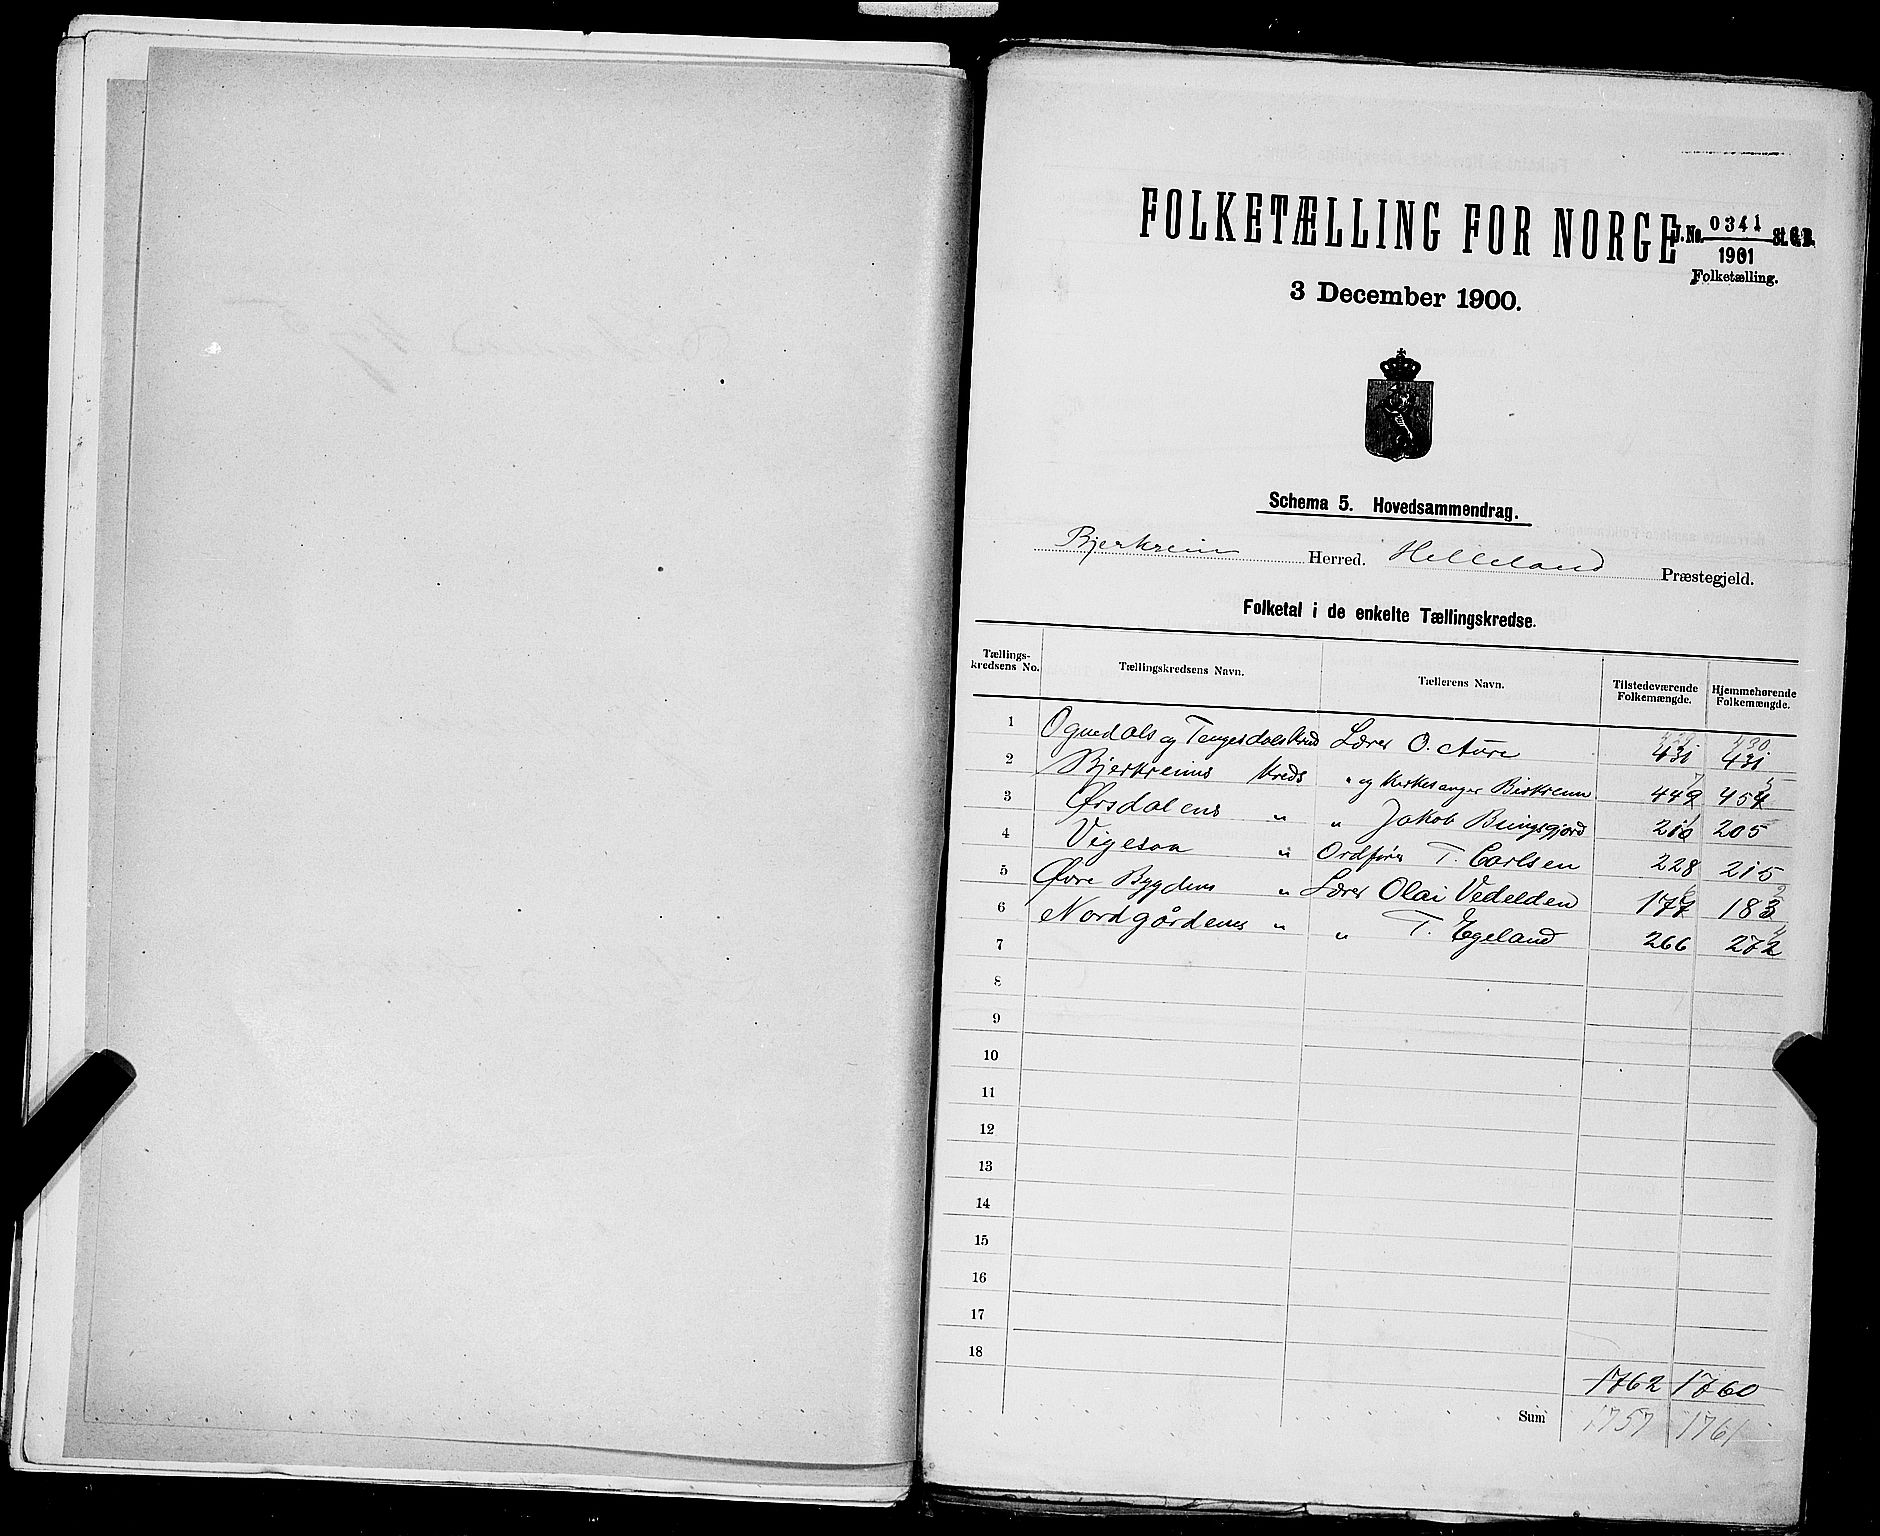 FOLKETÆLLING FOR NORGE
J. No. 0341 St. C. B.
1901
Folketælling.
3 December 1900.
Schema 5. Hovedsammendrag.
Bjerkreim Herred. Helleland Præstegjeld.
Folketal i de enkelte Tællingskredse.
Tællings-kredsens No. Tællingskredsens Navn. Tællerens Navn. Tilstedeværende Folkemængde. Hjemmehørende Folkemængde.
1 Ognedals og Tengesdals kreds Lærer O. Aure 431 431 430
2 Bjerkreims Kreds " og Kirkesanger Birkreim 449 454
3 Ørsdalens " " Jakob 210 205
4 Vigesaa " Ordfører T. Carlsen 228 215
5 Øvre Bygdens " Lærer Olai Vedelden 177 183
6 Nordgårdenes " " T. Egeland 266 272
7
8
9
10
11
12
13
14
15
16
17
18
1762 1760
Sum 1757 1761